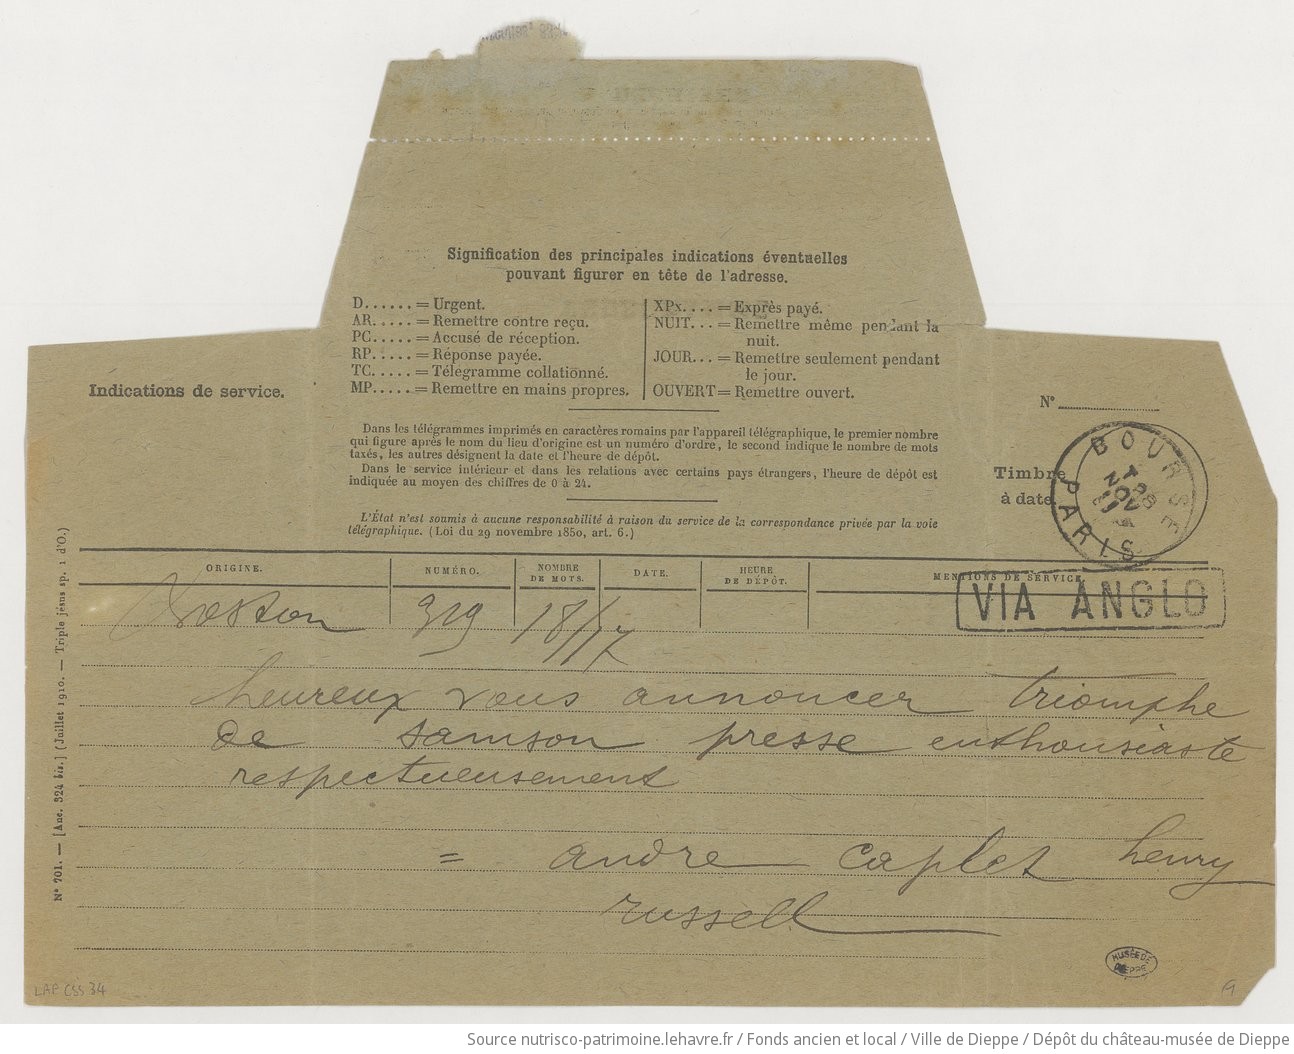 Signification des principales indications éventuelles
pouvant figurer en tête de l'adresse.
D...... = Urgent.
AR..... = Remettre contre reçu.
PC..... = Accusé de réception.
RP..... = Réponse payée.
TC..... = Télégramme collationné.
MP..... = Remettre en mains propres.
XPx.... = Exprès payé.
NUIT... = Remettre même pendant la
nuit.
JOUR... = Remettre seulement pendant
le jour.
OUVERT = Remettre ouvert.
Indications de service.
Dans les télégrammes imprimés en caractères romains par l'appareil télégraphique, le premier nombre
qui figure après le nom du lieu d'origine est un numéro d'ordre, le second indique le nombre de mots
taxés, les autres désignent la date et l'heure de dépôt.
Dans le service intérieur et dans les relations avec certains pays étrangers, l'heure de dépôt est
indiquée au moyen des chiffres de 0 à 24.
L'État n'est soumis à aucune responsabilité à raison du service de la correspondance privée par la voie
télégraphique. (Loi du 29 novembre 1850, art. 6.)
N°
Timbre
à date.
BOURSE
NOV
PARIS
ORIGINE. NUMÉRO. NOMBRE DE MOTS. DATE. HEURE DE DÉPÔT. MENTIONS DE SERVICE.
VIA ANGLO
Boston 319 18/17
heureux vous annoncer triomphe
de samson presse enthousiaste
respectueusement
= andre caplet henry
russell
N° 701. — [Anc. 324 bis.] (Juillet 1910. — Triple jésus sp. 1 d'O.)
MUSÉE DE
DIEPPE
LAP CSS 34
9
Source nutrisco-patrimoine.lehavre.fr / Fonds ancien et local / Ville de Dieppe / Dépôt du château-musée de Dieppe